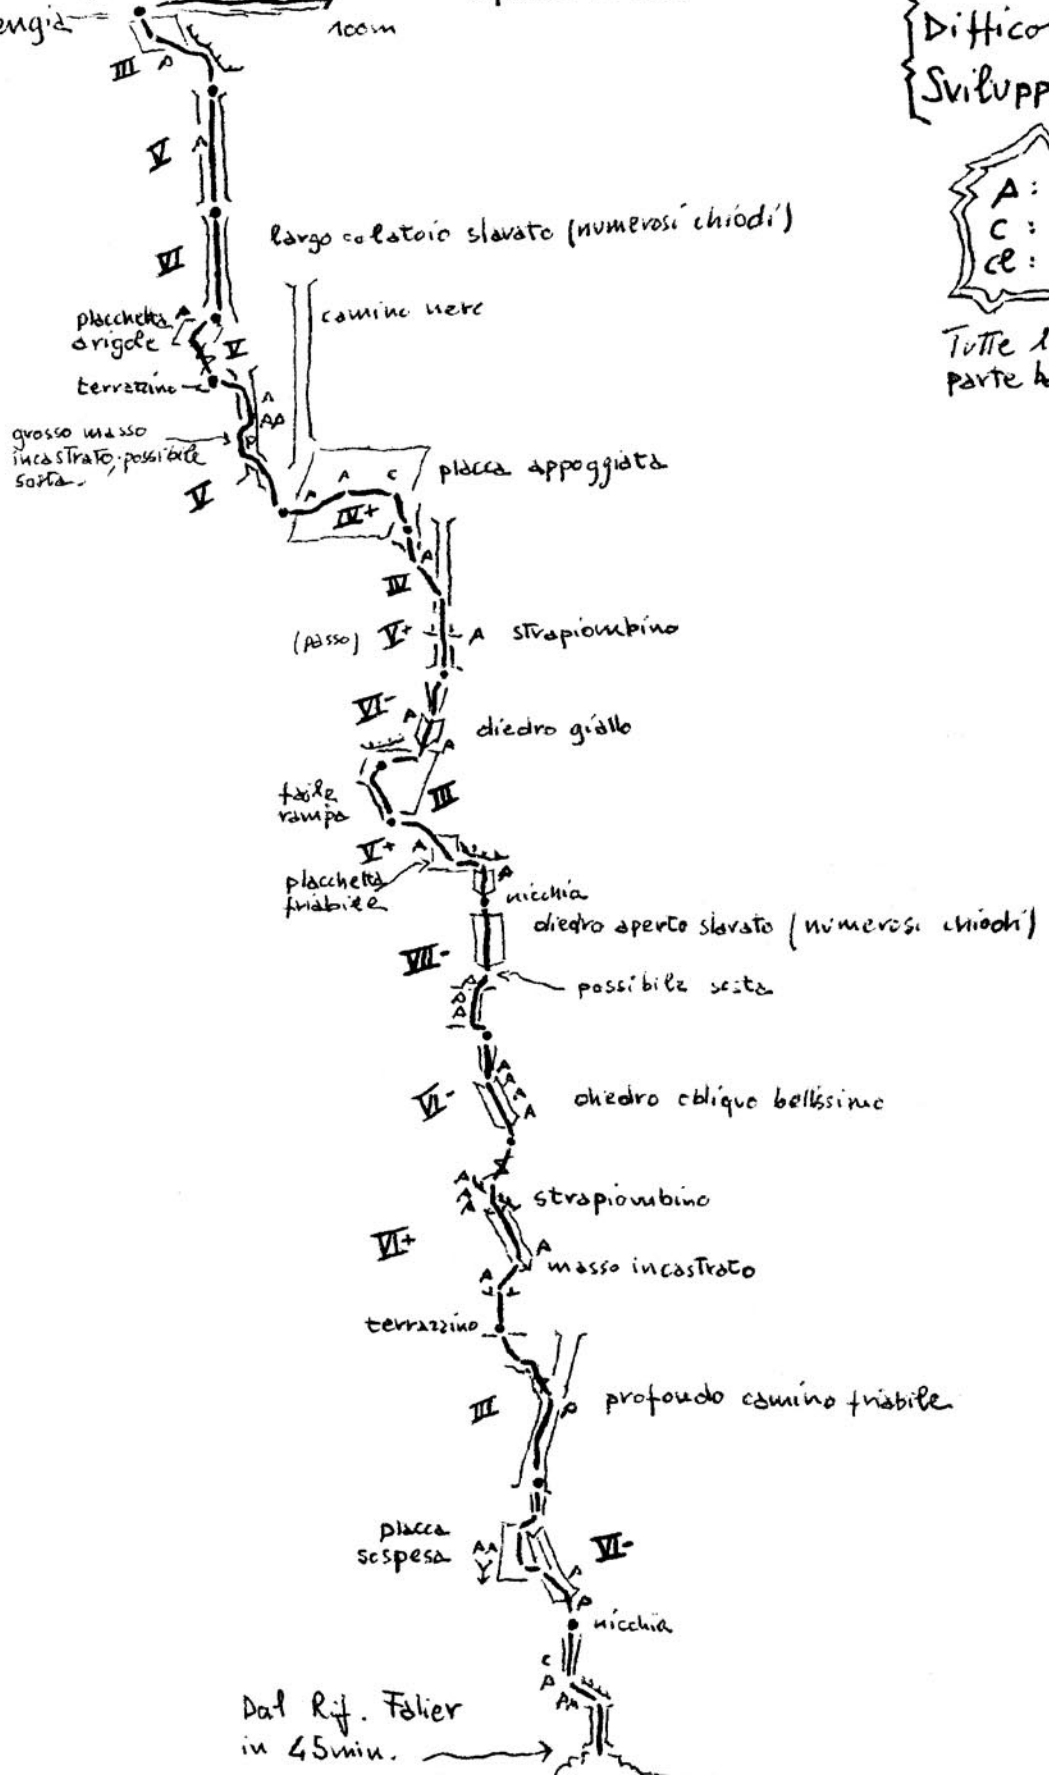 engia
100m
Diffico
Svilupp
III A
V A
A :
C :
ce :
largo colatoio slavato (numerosi chiodi)
VI
camino nero
placchetta A
a rigole V
Tutte l
parte b
terrazzino
A
AA
grosso masso
incastrato, possibile
sosta.
P
V
A A C placca appoggiata
IV+
IV A
(passo) V+ A strapiombino
VI- A
diedro giallo
A
facile
rampa
III
V+ A
placchetta
friabile
A
nicchia
diedro aperto slavato (numerosi chiodi)
VII-
possibile sosta
A
A
A
A
A
VI- A
A diedro obliquo bellissimo
A
A
A
strapiombino
VI+ A
masso incastrato
A
terrazzino
III P profondo camino friabile
placca
sospesa
AA VI-
A
P
nicchia
C
P
PA
Dal Rif. Falier
in 45min.